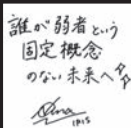 誰が弱者という
固定概念
のない未来へ